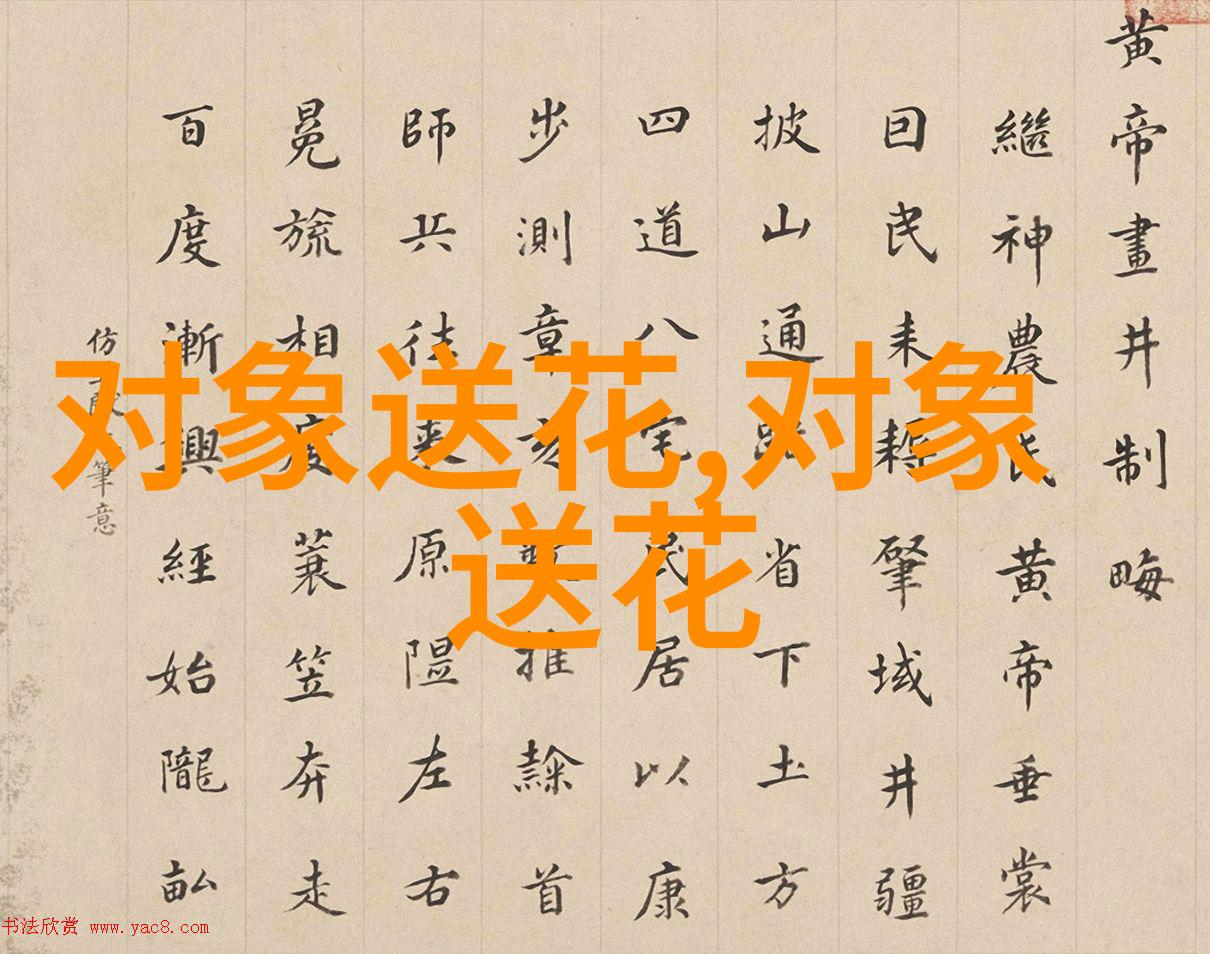 黄帝畫井制畮
繼神農氏黄帝垂裳
囙民耒耨肇域井疆
披山通省下土方
四道八宅民居以康
步測章亥推隸首
師兵往來原隰左右
冕旒相度蓑笠奔走
百度漸興經始隴畝
仿筆意
对象送花,对象
送花
书法欣赏 www.yac8.com